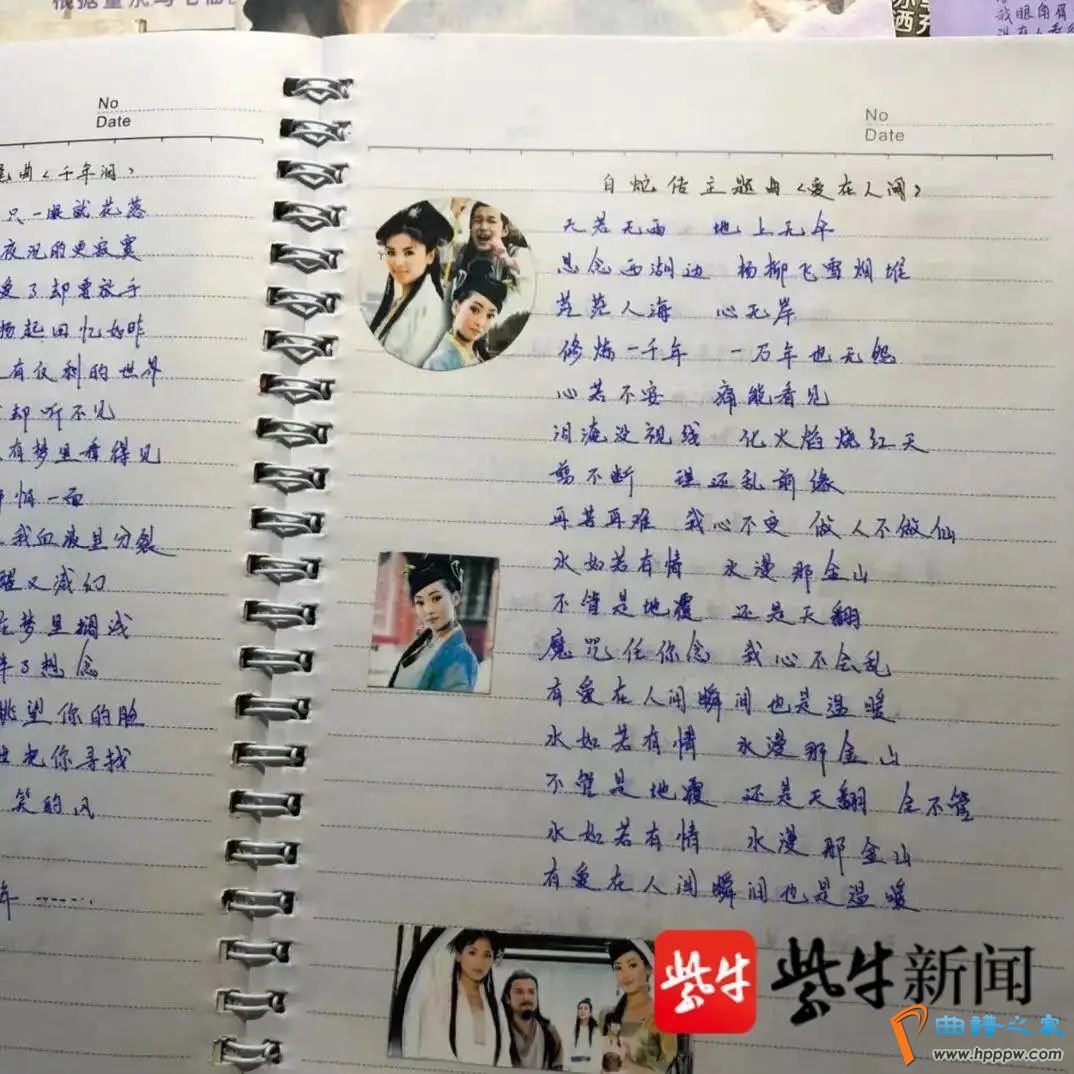 No
Date
尾曲《千年泪》
只一眼就花落
夜沉的更寂寞
爱了却要放手
扬起回忆如昨
有仅剩的世界
却听不见
有梦里看得见
情一面
我血液里分裂
醒又减幻
在梦里搁浅
了想念
眺望你的脸
把你寻找
笑的风
年 ……
No
Date
白蛇传主题曲《爱在人间》
天若无雨 地上无伞
思念西湖边 杨柳飞雪烟堆
茫茫人海 心无岸
修炼一千年 一万年也无怨
心若不安 痛能看见
泪淹没视线 化火焰烧红天
剪不断 理还乱前缘
再苦再难 我心不变 做人不做仙
水如若有情 水漫那金山
不管是地覆 还是天翻
魔咒任你念 我心不会乱
有爱在人间瞬间也是温暖
水如若有情 水漫那金山
不管是地覆 还是天翻 全不管
水如若有情 水漫那金山
有爱在人间瞬间也是温暖
紫牛 紫牛新闻
曲谱之家
www.hpppw.com